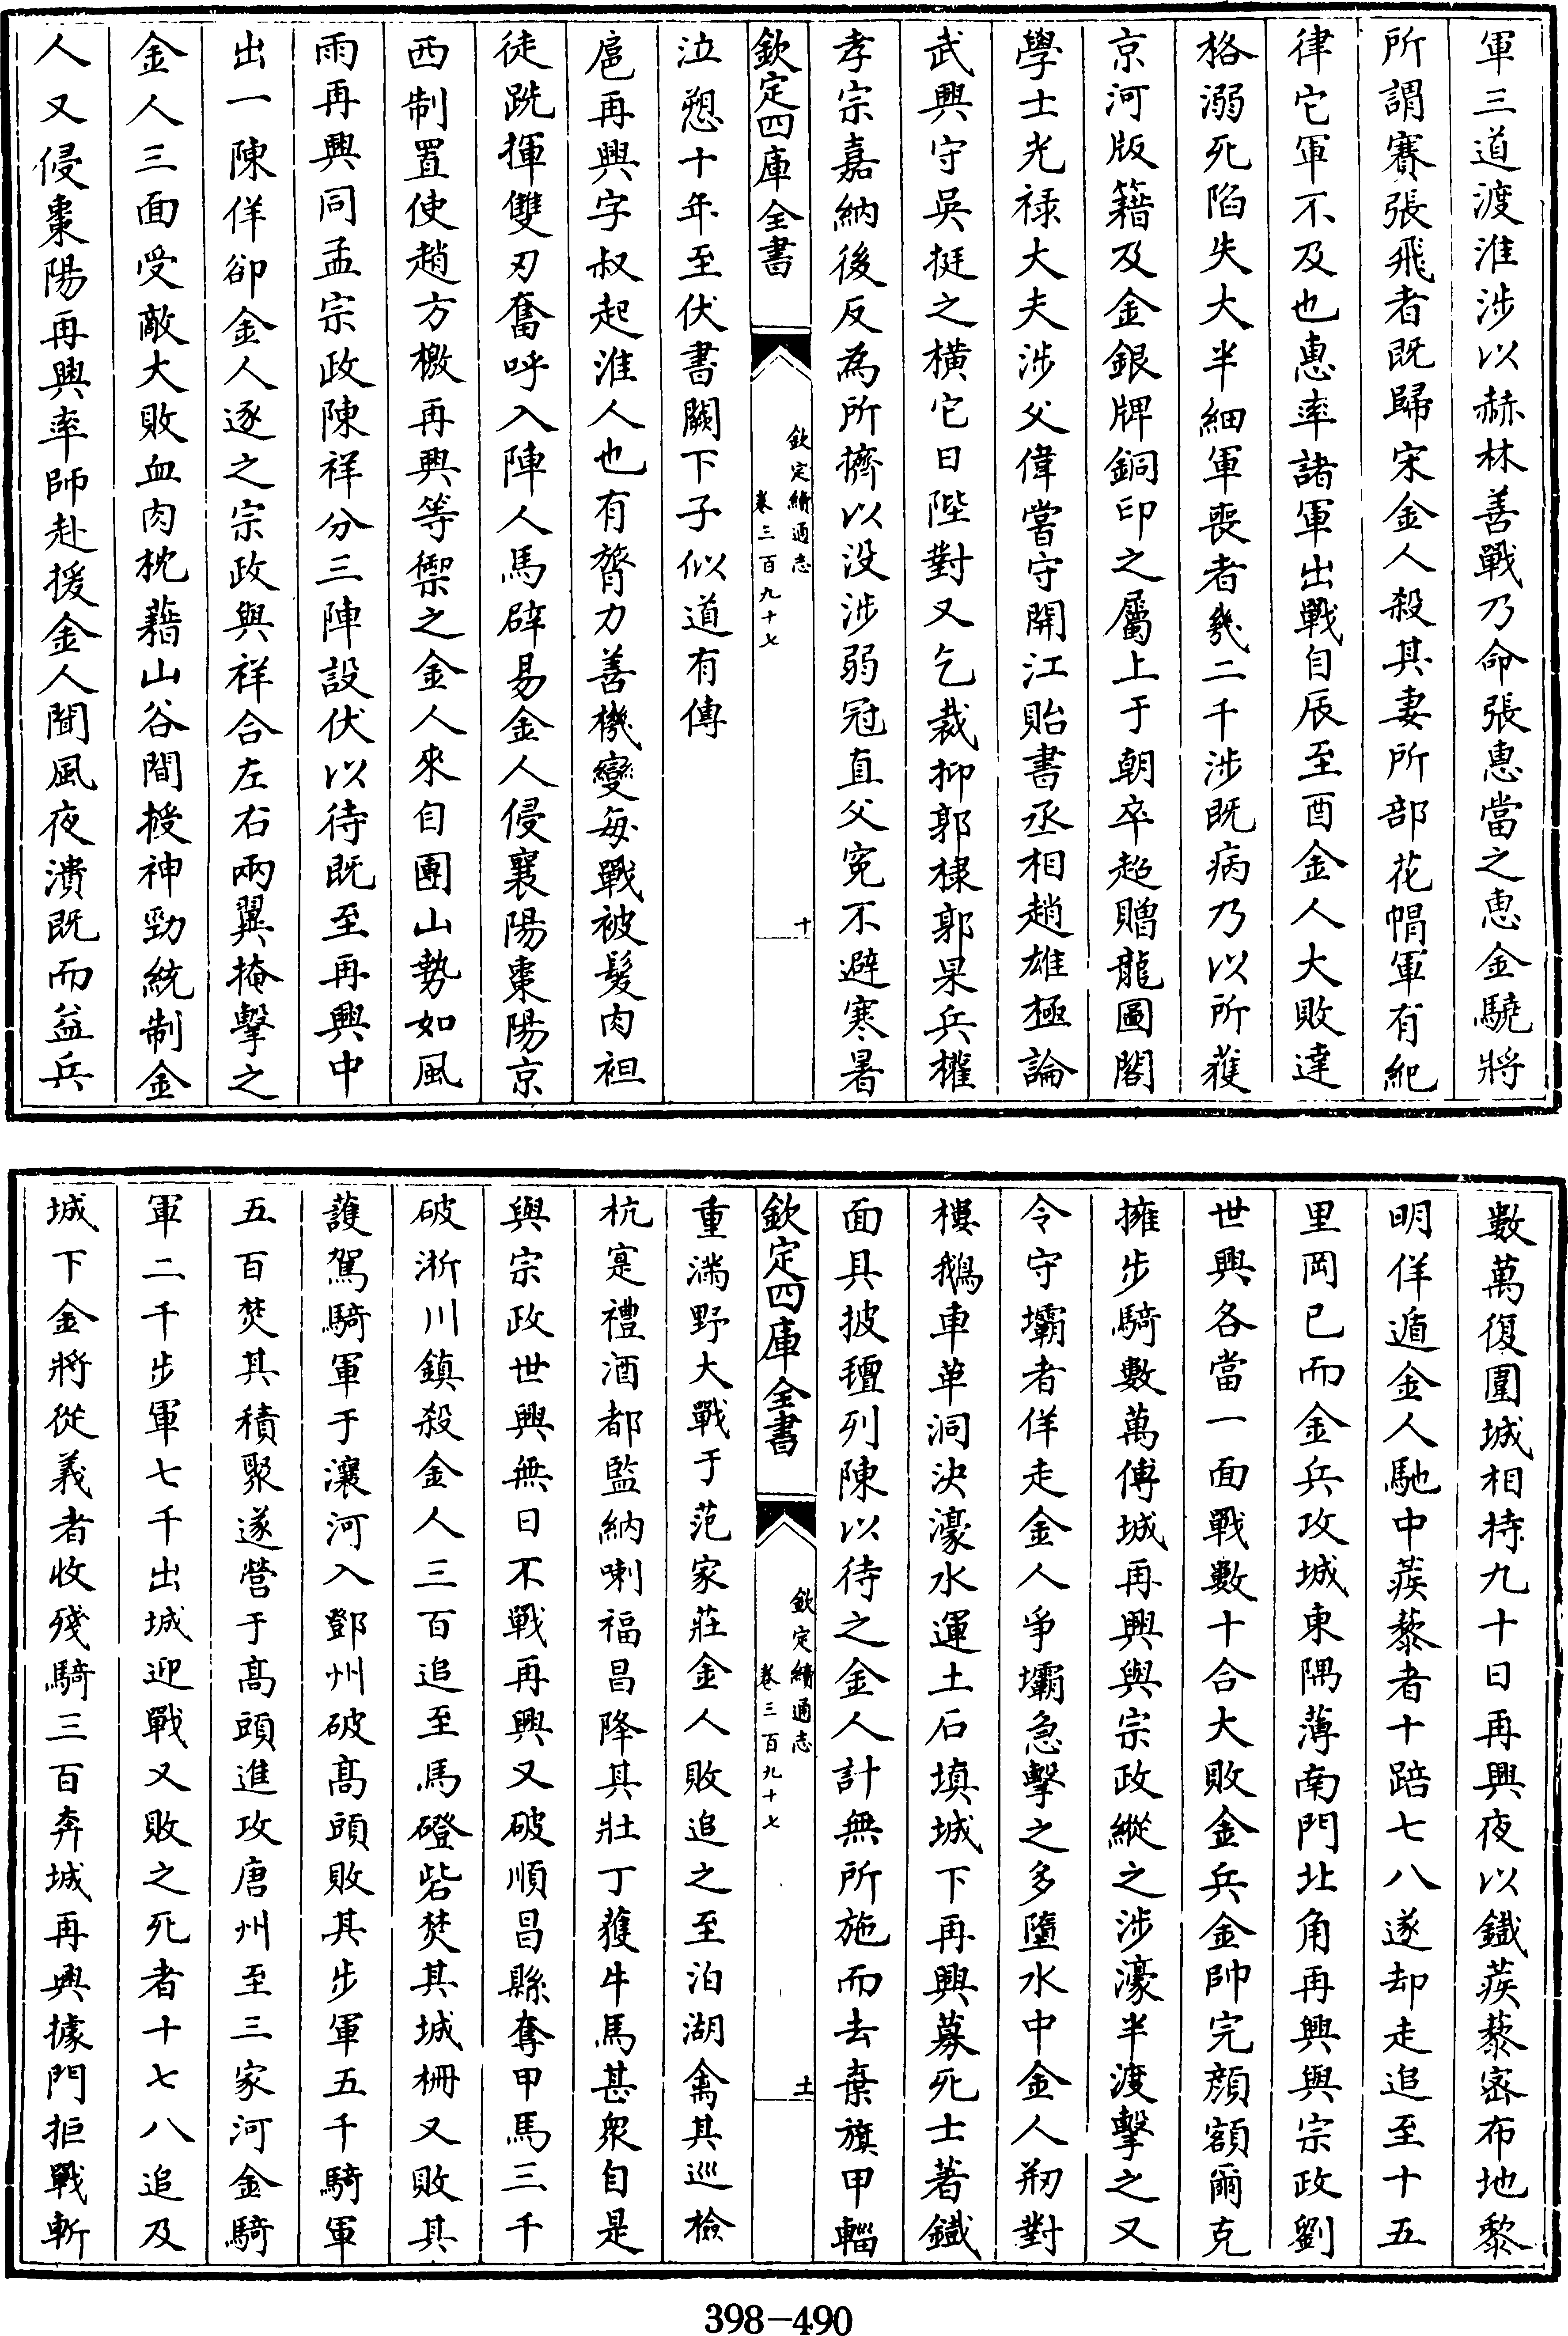 軍三道渡淮涉以赫林善戰乃命張惠當之惠金驍將
所謂賽張飛者既歸宋金人殺其妻所部花帽軍有紀
律它軍不及也惠率諸軍出戰自辰至酉金人大敗達
格溺死陷失大半細軍喪者幾二千涉既病乃以所獲
京河版籍及金銀牌銅印之屬上于朝卒超贈龍圖閣
學士光祿大夫涉父偉嘗守開江貽書丞相趙雄極論
武興守吳挺之橫它日陛對又乞裁抑郭棣郭杲兵權
孝宗嘉納後反為所擠以没涉弱冠直父寃不避寒暑
欽定四庫全書
欽定續通志
卷三百九十七
十
泣愬十年至伏書闕下子似道有傳
扈再興字叔起淮人也有膂力善機變每戰被髮肉袒
徒跣揮雙刃奮呼入陣人馬辟易金人侵襄陽棗陽京
西制置使趙方檄再興等禦之金人來自團山勢如風
雨再興同孟宗政陳祥分三陣設伏以待既至再興中
出一陳佯卻金人逐之宗政與祥合左右兩翼掩擊之
金人三面受敵大敗血肉枕藉山谷間授神勁統制金
人又侵棗陽再興率師赴援金人聞風夜潰既而益兵
數萬復圍城相持九十日再興夜以鐵蒺藜密布地黎
明佯遁金人馳中蒺藜者十踣七八遂却走追至十五
里岡已而金兵攻城東隅薄南門北角再興與宗政劉
世興各當一面戰數十合大敗金兵金帥完顏額爾克
擁步騎數萬傅城再興與宗政縱之涉濠半渡擊之又
令守壩者佯走金人爭壩急擊之多墮水中金人剏對
樓鵝車革洞決濠水運土石填城下再興募死士著鐵
面具披氊列陳以待之金人計無所施而去棄旗甲輜
欽定四庫全書
欽定續通志
卷三百九十七
十一
重滿野大戰于范家莊金人敗追之至泊湖禽其巡檢
杭寔禮酒都監納喇福昌降其壯丁獲牛馬甚衆自是
與宗政世興無日不戰再興又破順昌縣奪甲馬三千
破淅川鎮殺金人三百追至馬磴砦焚其城柵又敗其
護駕騎軍于瀼河入鄧州破高頭敗其步軍五千騎軍
五百焚其積聚遂營于高頭進攻唐州至三家河金騎
軍二千步軍七千出城迎戰又敗之死者十七八追及
城下金將從義者收殘騎三百奔城再興據門拒戰斬
398-490